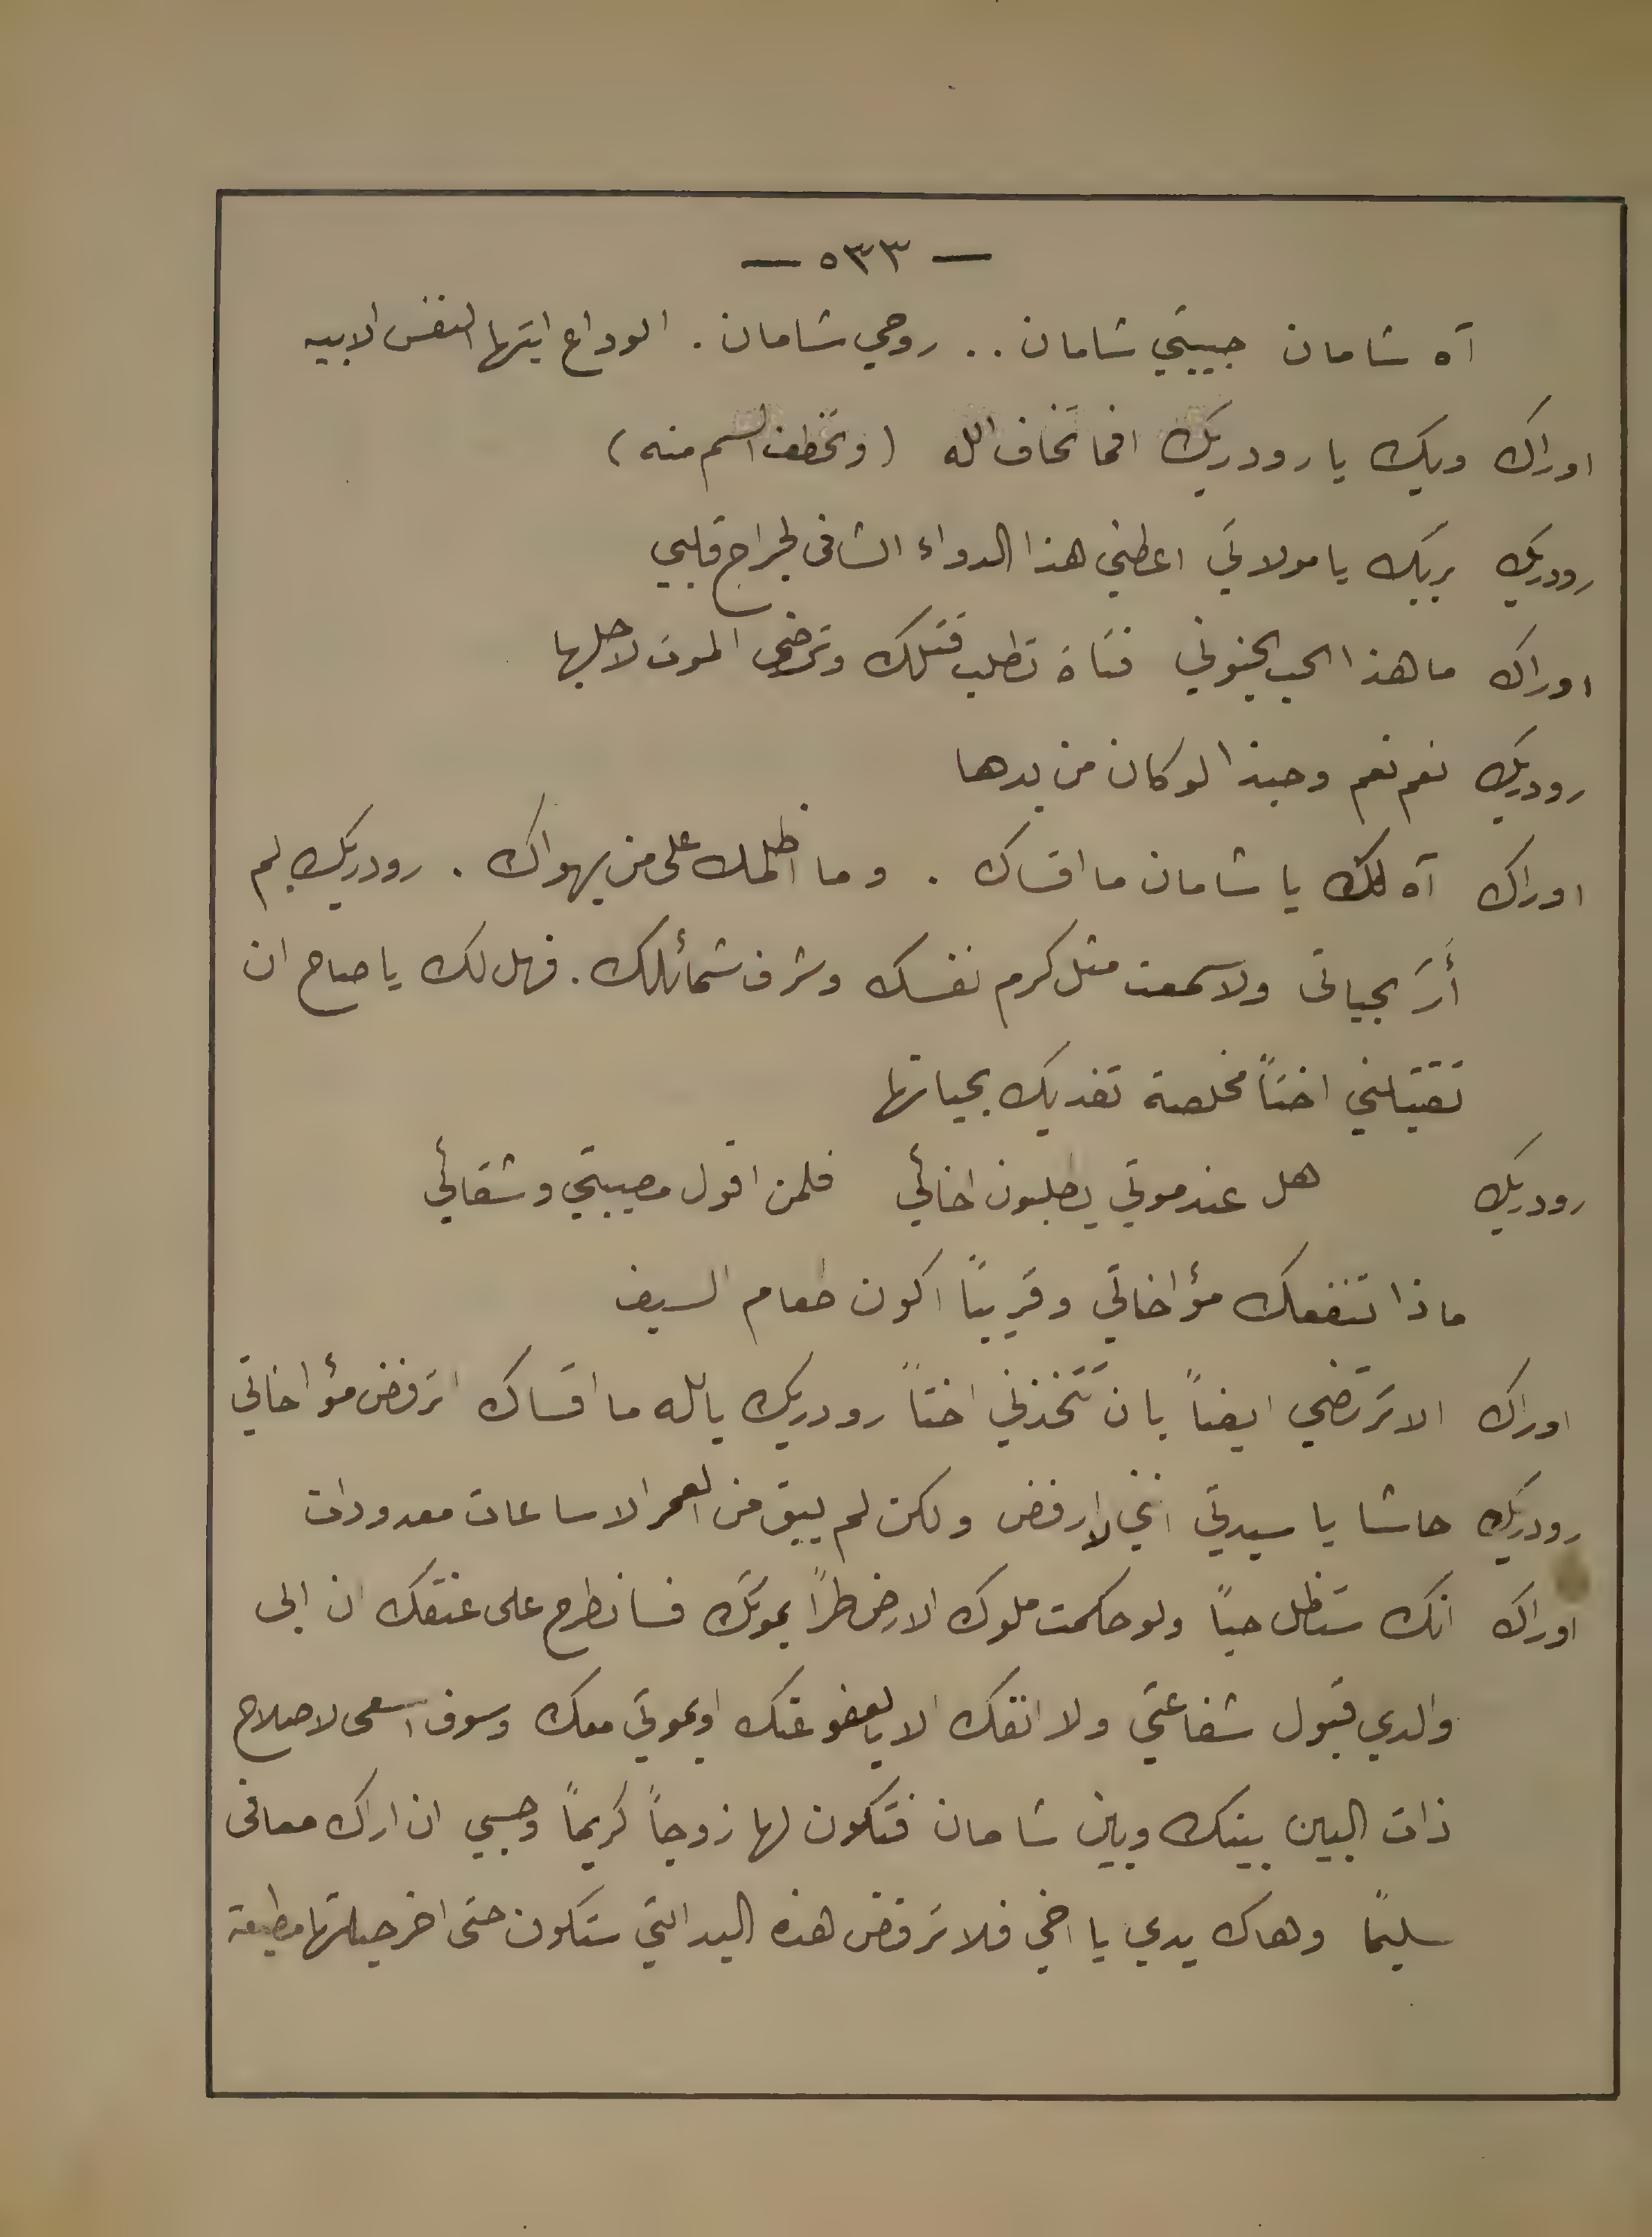 — ٥٣٣ —
آه شامان حبيبتي شامان .. روحي شامان . الوداع ايتها النفس الابيه
اوراك ويك يا رودريك افما تخاف الله (وتخطف السم منه)
رودريك بربك يا مولاتي اعطني هذا الدواء الشافى لجراح قلبي
اوراك ما هذا الحب الجنوني فتاة تطلب قتلك وترضى الموت لاجلها
رودريك نعم نعم وحبذا لو كان من يدها
اوراك آه لك يا شامان ما اقساك . وما اظلمك على من يهواك . رودريك لم
أرَ بحياتى ولا سمعت مثل كرم نفسك وشرف شمائلك . فهل لك يا صاح ان
تقتبلني اختاً مخلصة تفديك بحياتها
رودريك هل عند موتي يطلبون اخائي فلمن اقول مصيبتي وشقائي
ماذا تنفعك مؤاخاتي وقريباً اكون طعام السيف
اوراك الا ترتضي ايضاً بان تتخذني اختاً رودريك يالله ما اقساك اترفض مؤاخاتي
رودريك حاشا يا سيدتي انني لا ارفض ولكن لم يبق من العمر الا ساعات معدودات
اوراك انك ستظل حياً ولو حكمت ملوك الارض طراً بموتك فسانطرح على عنقك ان ابى
والدي قبول شفاعتي ولا انفك الا بالعفو عنك او بموتي معك وسوف اسعى لاصلاح
ذات البين بينك وبين شامان فتكون لها زوجاً كريماً وحسبي ان اراك معافى
سليماً وهاك يدي يا اخي فلا ترفض هذه اليد التي ستكون حتى اخر حياتها مطيعة